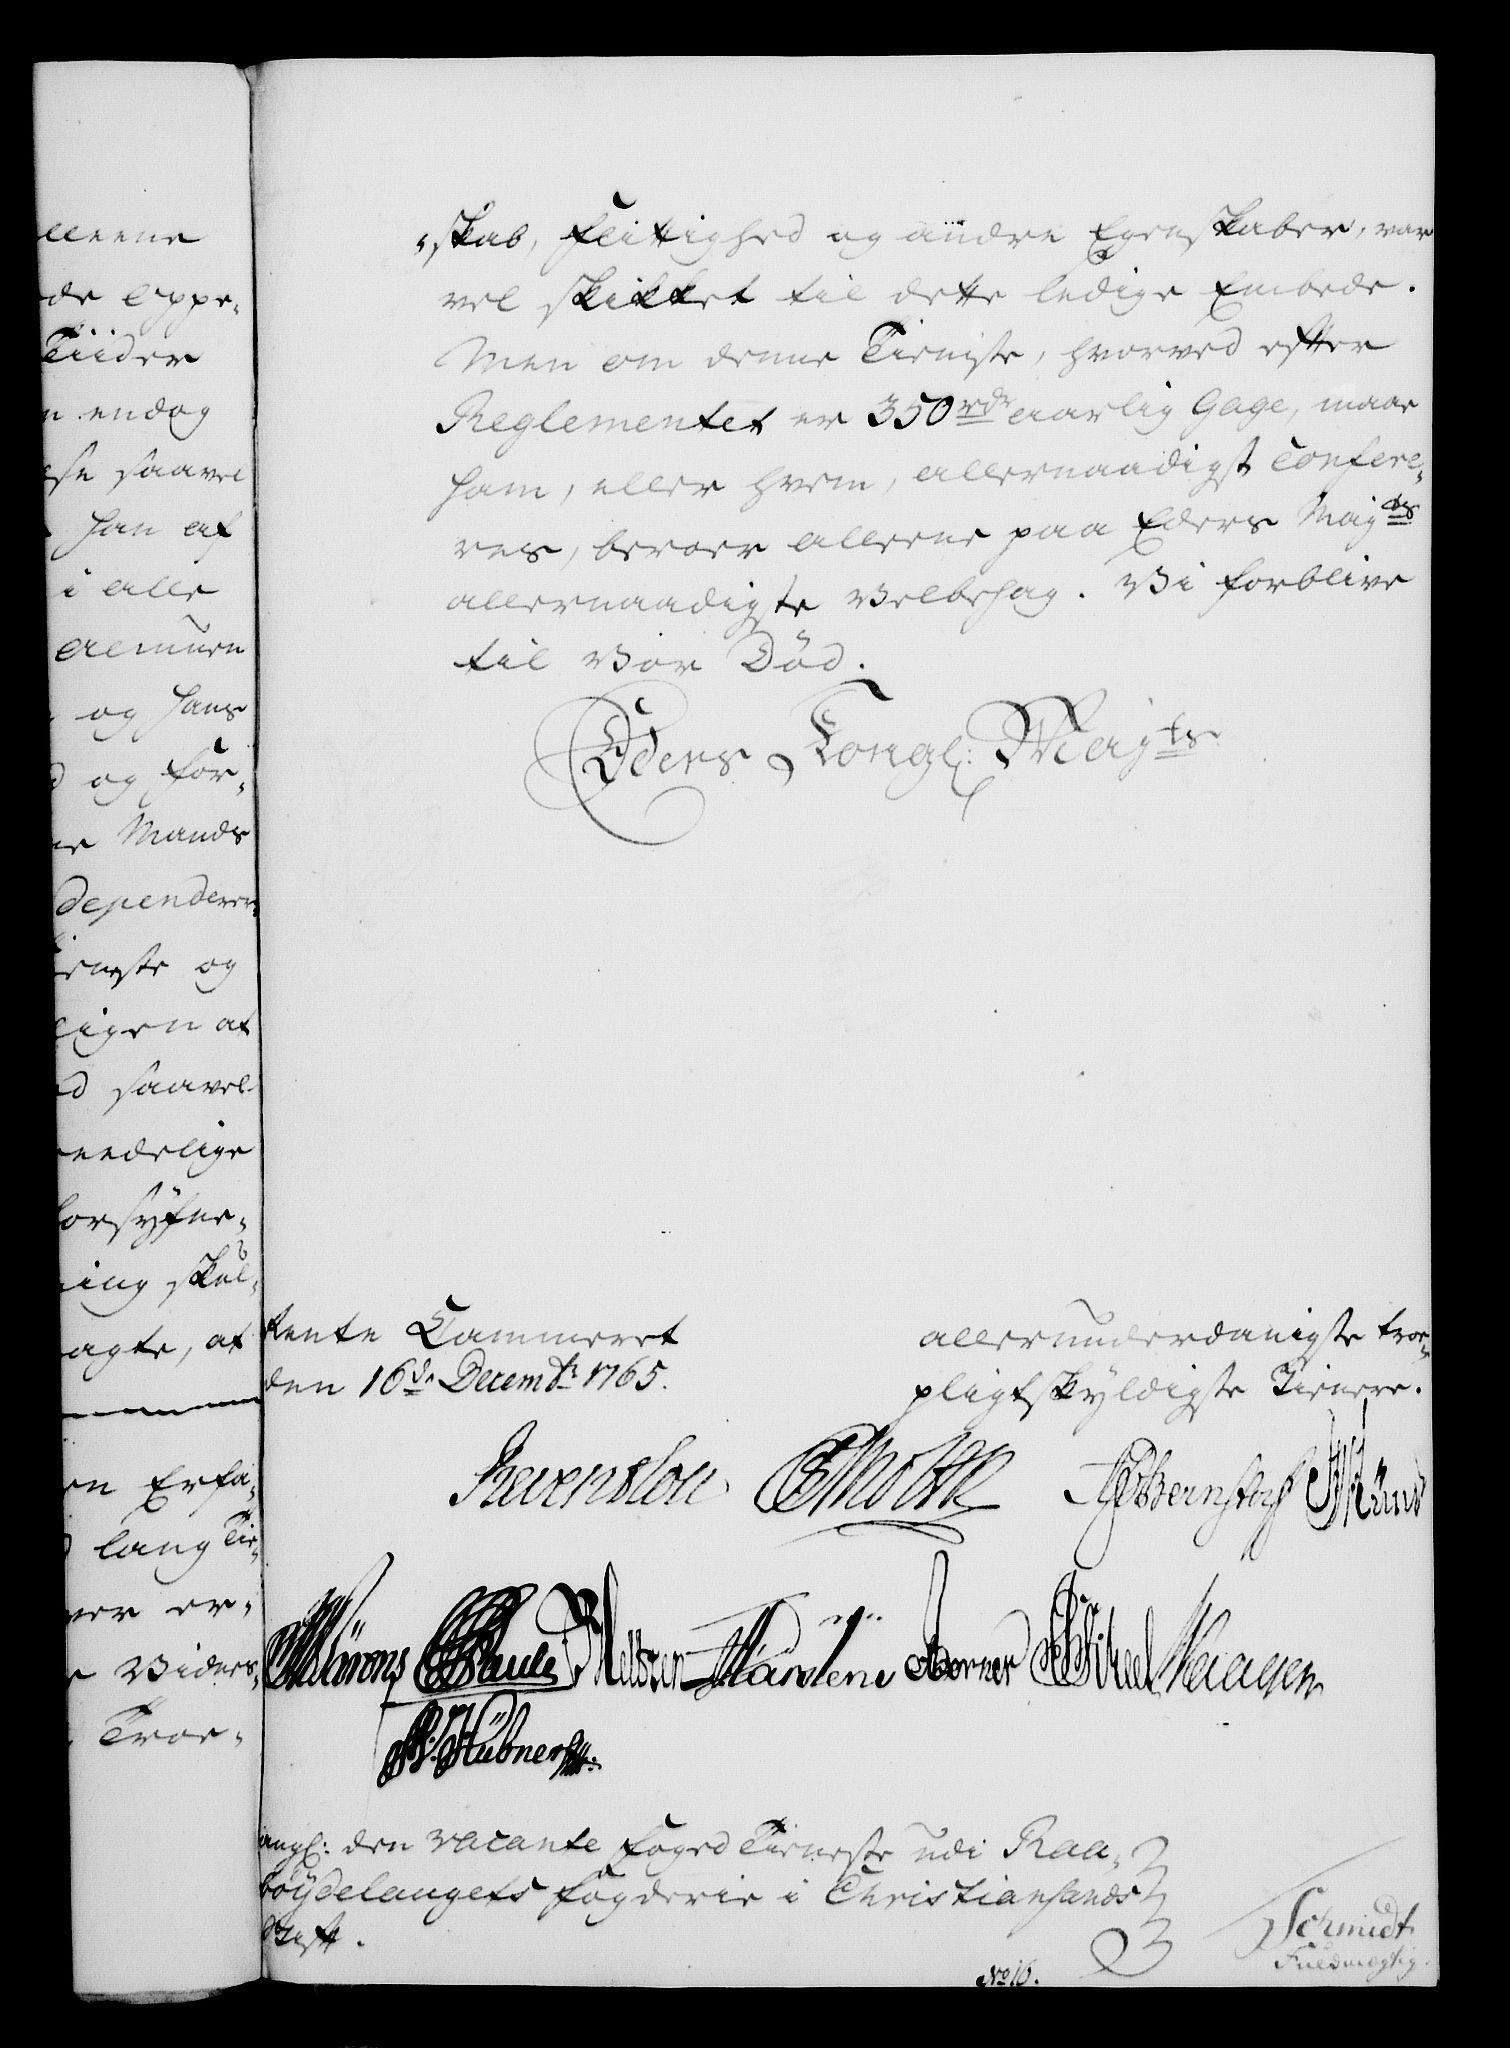 lleene
de oppe-
Tiider
n endog
se saavel
han af
i alle
Almuen
og hans
d og for-
ne Mands
dependerer
ieneste og
ligen at
d saavel
eendelige
forsyfne-
ing skul-
agte, at
en Erfa-
lang Tie-
ver er-
Vides
Troe-
-skab, flittighed og andre Egenskaber, var
vel skikket til dette ledige Embede.
Men om denne Tieniste, hvorved efter
Reglementet er 350 rdr aarlig Gage, maae
ham, eller hvem, allernaadigst confere-
res, beroer alleene paa Eders Mayts
allernaadigste Velbehag. Vi forblive
til Vor Død.
Eders Kongl: Mayts
Rente Cammeret
den 16de Decembr 1765.
allerunderdanigste troe-
pligtskyldigste Tienere.
Reventlou AGMoltke JHEBernstorff
Schrøder Marstens Berner Kaagen
Hübner
angl: den vacante foged Tieneste udi Raa-
bøydelaugets fogderie i Christiansands
Stift.
Schmidt
Fuldmægtig
No 16.